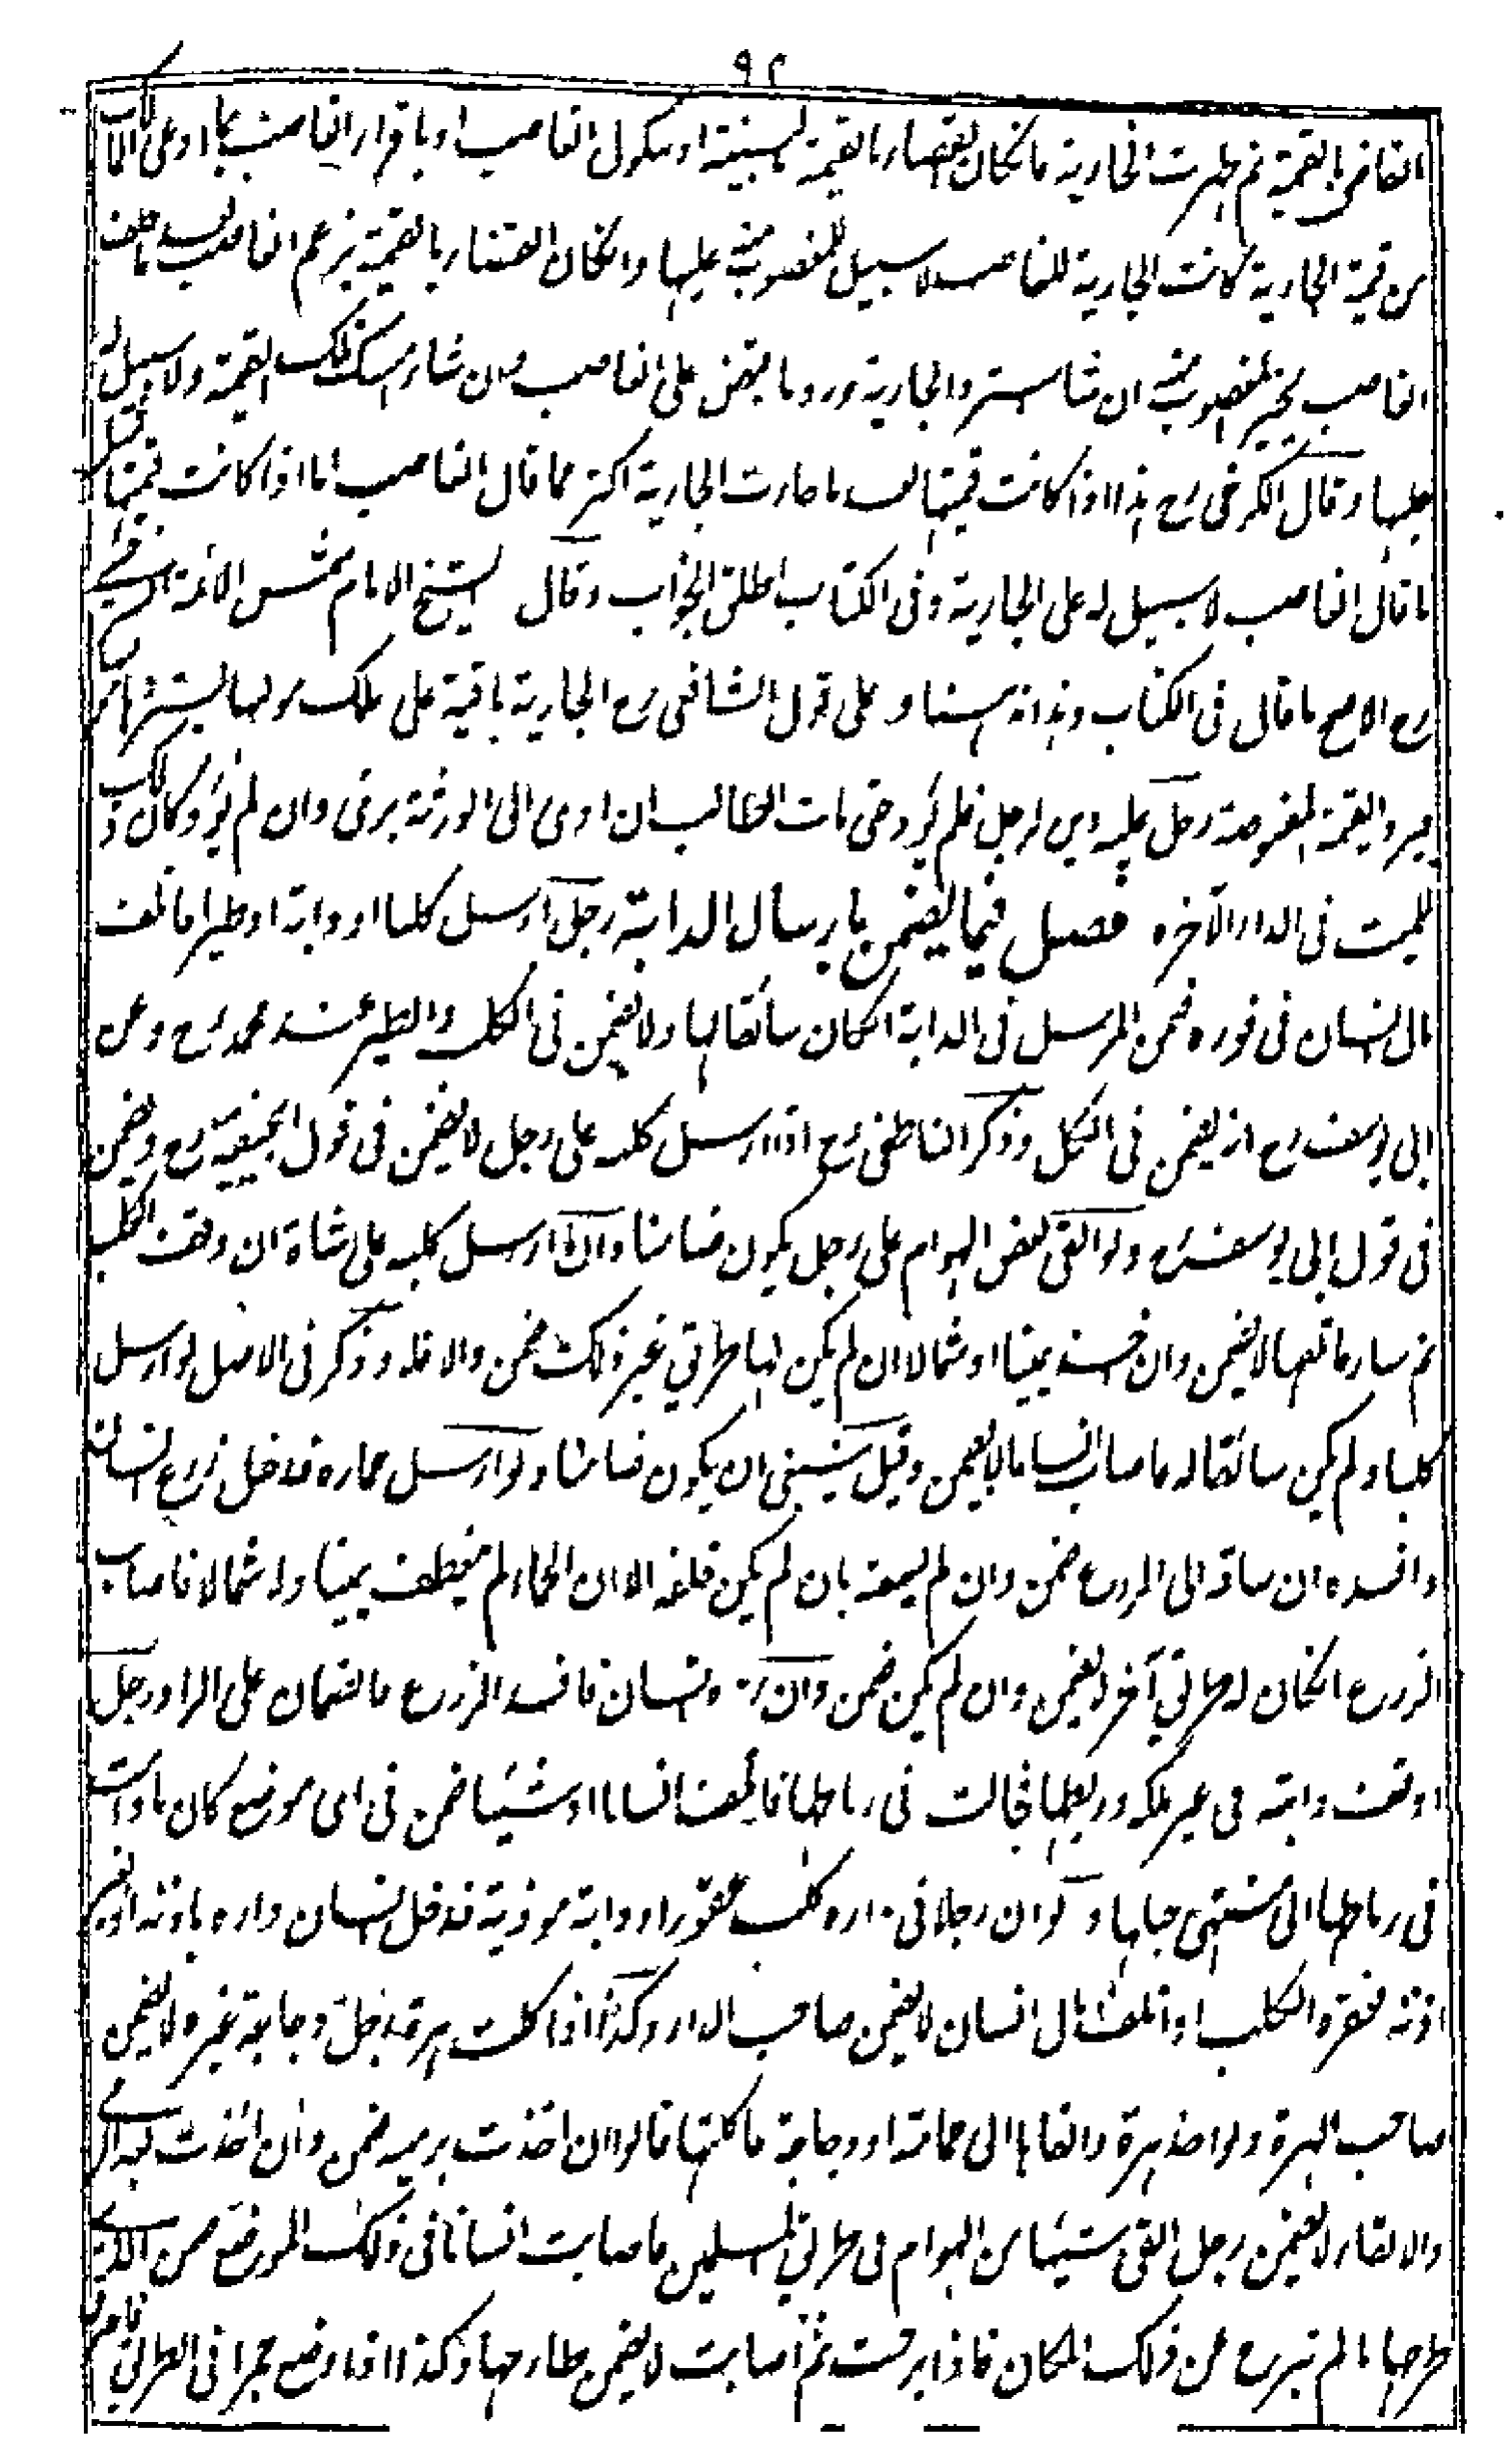 ٩٢
القاضى بالقيمة ثم ظهرت الجارية فانكان القضاء بالقيمة بالبينة او بنكول الغاصب او باقرار الغاصب بما ادعى المالك
من قيمة الجارية كانت الجارية للغاصب لا سبيل للمغصوب منه عليها وانكان القضاء بالقيمة بزعم الغاصب بعد ما حلف
الغاصب يخير المغصوب منه ان شاء استرد الجارية ورد ما قبض على الغاصب وان شاء امسك تلك القيمة ولا سبيل له
عليها وقال الكرخى رح هذا اذا كانت قيمتها بعد ما ظهرت الجارية اكثر مما قال الغاصب اما اذا كانت قيمتها مثل
ما قال الغاصب لا سبيل له على الجارية وفى الكتاب اطلق الجواب وقال الشيخ الامام شمس الائمة السرخسى
رح الاصح ما قال فى الكتاب وهذا عندنا وعلى قول الشافعى رح الجارية باقية على ملك مولاها يستردها
ويرد القيمة المقبوضة رجل عليه دين لرجل فلم يؤد حتى مات الطالب ان ادى الى الورثة برئ وان لم يؤد كان ذلك
للميت فى الدار الآخرة فصل فيما يضمن بارسال الدابة رجل ارسل كلبا او دابة او طيرا فاتلف
مال انسان فى فوره ضمن المرسل فى الدابة انكان سائقا لها ولا يضمن فى الكلب والطير عند محمد رح وعن
ابى يوسف رح انه يضمن فى الكل وذكر الناطفى رح اذا ارسل كلبه على رجل لا يضمن فى قول ابى حنيفة رح ويضمن
فى قول ابى يوسف رح ولو القى بعض الهوام على رجل يكون ضامنا واذا ارسل كلبه على شاة ان وقف الكلب
ثم سار فقتلها لا يضمن وان اخذ يمينا او شمالا ان لم يكن لها طريق غير ذلك ضمن والا فلا وذكر فى الاصل لو ارسل
كلبا ولم يكن سائقا له فاصاب انسانا لا يضمن وقيل ينبغى ان يكون ضامنا ولو ارسل حماره فدخل زرع انسان
وافسده ان ساقه الى الزرع ضمن وان لم يسقه بان لم يكن خلفه الا ان الحمار لم ينعطف يمينا ولا شمالا فاصاب
الزرع انكان له طريق آخر لا يضمن وان لم يكن ضمن وان رده انسان فافسد الزرع فالضمان على الراد رجل
اوقف دابته فى غير ملكه وربطها فجالت فى رباطها فاتلفت انسانا او شيئا ضمن فى اى موضع كان ما دامت
فى رباطها الى منتهى حبلها ولو ان رجلا فى داره كلب عقور او دابة موذية فدخل انسان داره باذنه او بغير
اذنه فعقره الكلب او اتلف مال انسان لا يضمن صاحب الدار وكذا اذا اكلت هرة رجل دجاجة غيره لا يضمن
صاحب الهرة ولو اخذ هرة والقاها الى حمامة او دجاجة فاكلتها قالوا ان اخذت برميه ضمن وان اخذت بعد الرمى
والالقاء لا يضمن رجل القى شيئا من الهوام فى طريق المسلمين فاصابت انسانا فى ذلك الموضع ضمن الذى
طرحها ما لم تبرح عن ذلك المكان فاذا برحت ثم اصابت لا يضمن طارحها وكذا اذا وضع حجرا فى الطريق